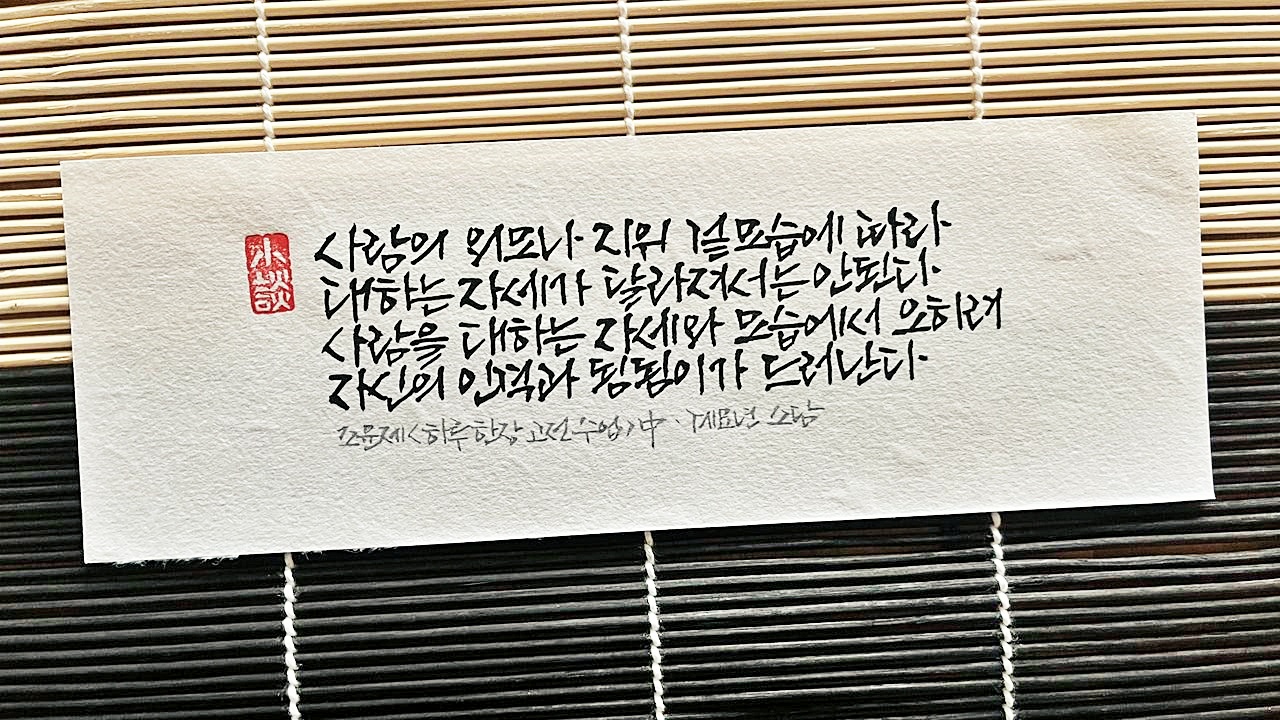 小談
사람의 외모나 지위 겉모습에 따라
대하는 자세가 달라져서는 안된다
사람을 대하는 자세와 모습에서 오히려
자신의 인격과 됨됨이가 드러난다
조윤제<하루 한장 고전수업>中 · 계묘년 소담